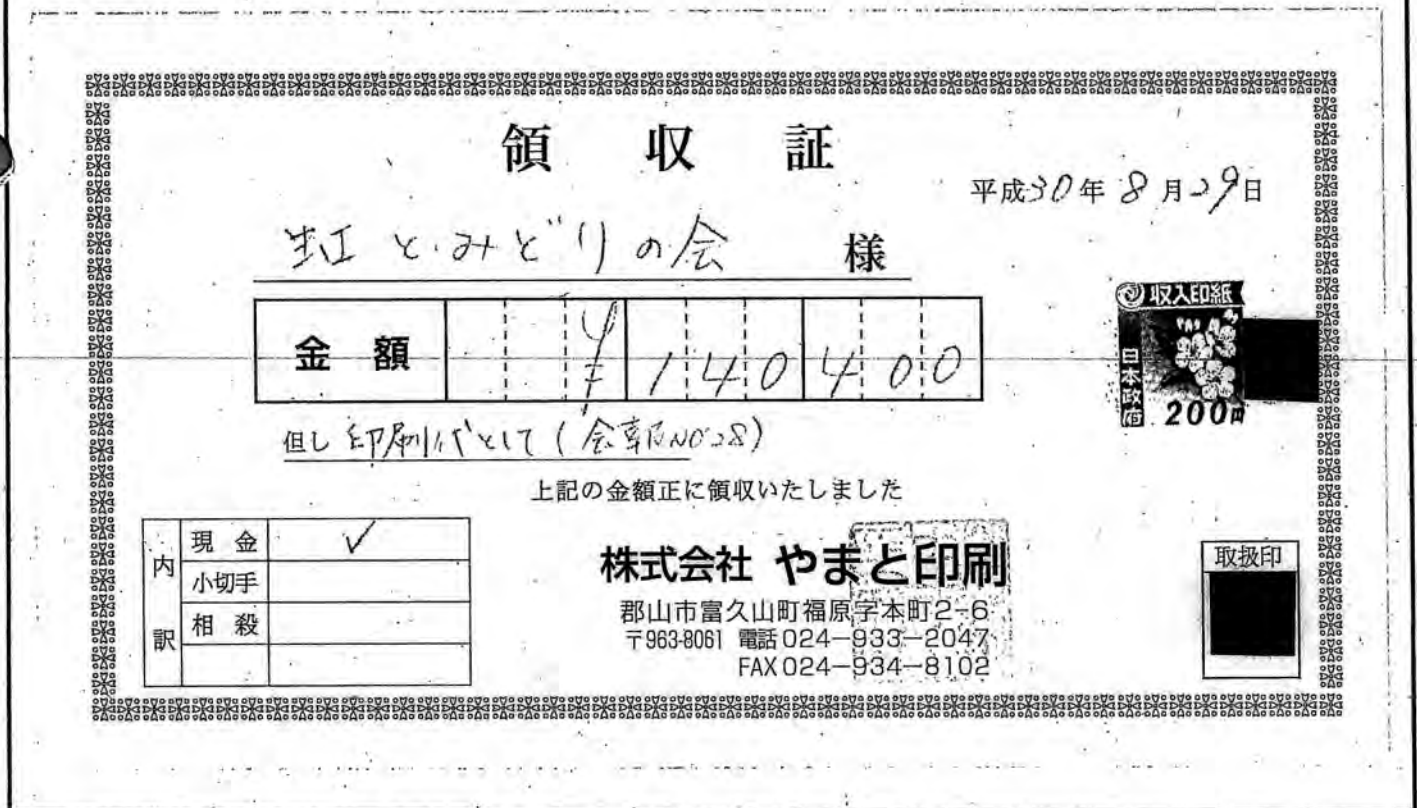 領収証
平成30年8月29日
虹とみどりの会 様
収入印紙
日本政府
200円
金額 ¥140400
但し 印刷代として(会報NO28)
上記の金額正に領収いたしました
内訳
現金 ✓
小切手
相殺
株式会社 やまと印刷
郡山市富久山町福原字本町2-6
〒963-8061 電話024-933-2047
FAX024-934-8102
取扱印